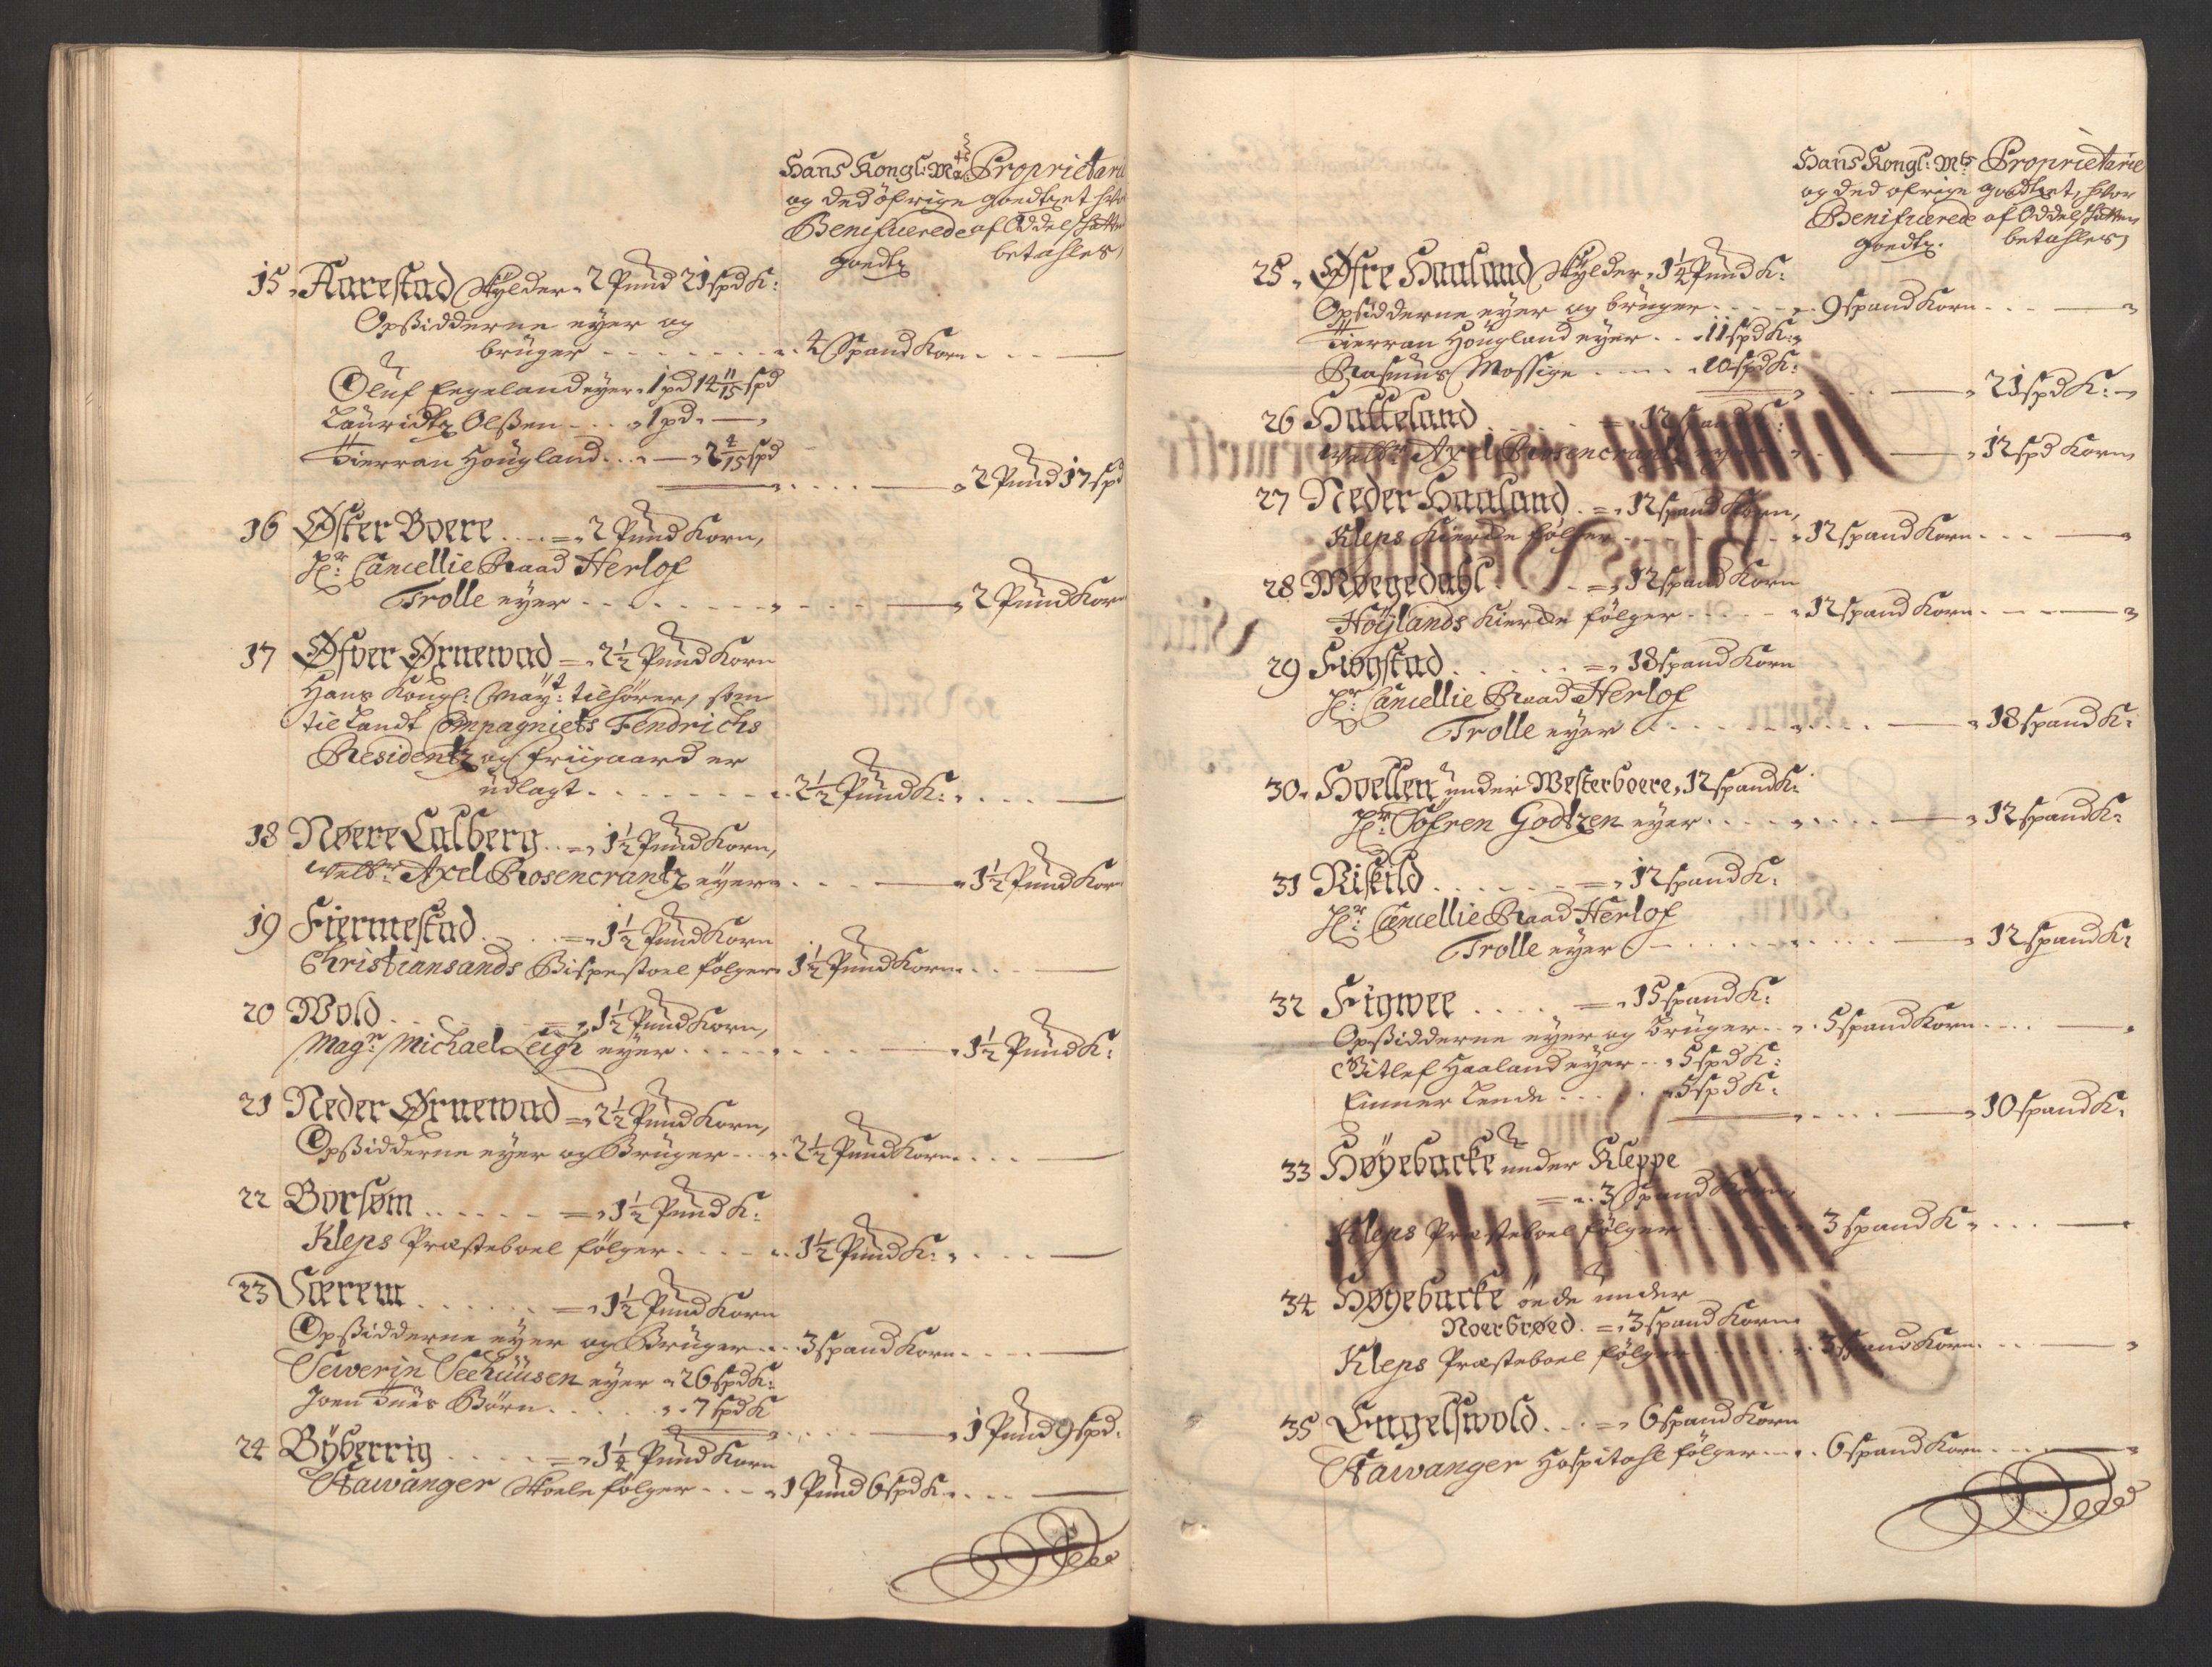 Hans Kongl: Mats Proprietari
og ded öfrige goedtzet hvor
Benificerede af Oddelschatten
goedtz betahles,
15, Aarestad Skylder, 2 Pund 21 spd K:
Opsidderne eyer og
brüger 4 Spand Korn
Oluf Engeland eyer, 1 pd 14 11/15 spd
Lauridtz Olssen 1 pd. —
Tierran Høugland — 2 4/15 spd
2 Pund 17 spd
16 Øster Boere = 2 Pund Korn,
Hr: Cancellie Raad Herlof
Trolle eyer 2 Pund Korn
17 Øfver Ørnewad = 2½ Pund Korn
Hans Kongl: Mayt: tilhører, som
til Landt Compagniets Fendrichs
Residentz og friigaard er
udlagt 2½ Pund K:
18 Nøere Calberg = 1½ Pund Korn,
Welbr: Axel Rosencrantz eyer 1½ Pund Korn
19 Fiermestad = 1½ Pund Korn
Christiansands Bispestoel følger 1½ Pund Korn
20 Wold = 1½ Pund Korn,
Magr: Michael Leigh eyer 1½ Pund K:
21 Neder Ørnewad = 2½ Pund Korn,
Opsidderne eyer og Brüger 2½ Pund Korn
22 Borsøm = 1½ Pund K:
Kleps Præsteboel følger 1½ Pund K:
23 Særem = 1½ Pund Korn
Opsidderne eyer og Brüger 3 spand Korn
Sewerin Seehuusen eyer 26 spd K:
Joen Tues Børn 7 spd K
1 Pund 9 spd.
24 Bÿberrig = 1¼ Pund Korn
Stawanger Skole følger 1 Pund 6 spd K.
Hans Kongl: Mts Proprietarie
og ded ofrige goedtzet, hvor
Benificerede af Oddelschatten
goedtz. betahles,
25, Øfre Haaland Skylder, 1¼ Pund K:
Opsidderne eyer og brüger 9 spand Korn
Tierran Høugland eyer 11 spd K:
Rasmus Mossige 10 spd K:
21 spd K:
26 Hatteland = 12 spand K:
Welbr: Axel Rosencrantz eyer 12 spd Korn
27 Neder Haaland = 12 spand Korn,
Kleps Kierke følger 12 spand Korn
28 Møegedahl = 12 spand Korn
Höÿlands Kierke følger 12 spand Korn
29 Fiogstad = 18 spand Korn
Hr: Cancellie Raad Herlof
Trolle eyer 18 spand K:
30, Hoellen under Westerboere, 12 spand K:
Hr: Søfren Godtzen eyer 12 spand K:
31 Riskild = 12 spand K:
Hr: Cancellie Raad Herlof
Trolle eyer 12 spand K:
32 Figwee = 15 spand K:
Opsidderne eyer og Brüger 5 spand Korn
Ditlef Haaland eyer 5 spd K:
Einner Lende 5 spd K:
10 spand K:
33 Høyebacke under Kleppe
= 3 Spand Korn,
Kleps Præsteboel følger 3 spand K
34 Høyebacke öede under
Noerbrøed. = 3 spand Korn
Kleps Præsteboel følger 3 spand Korn
35 Engelswold = 6 spand Korn
Stawanger Hospitahl følger 6 spand Korn